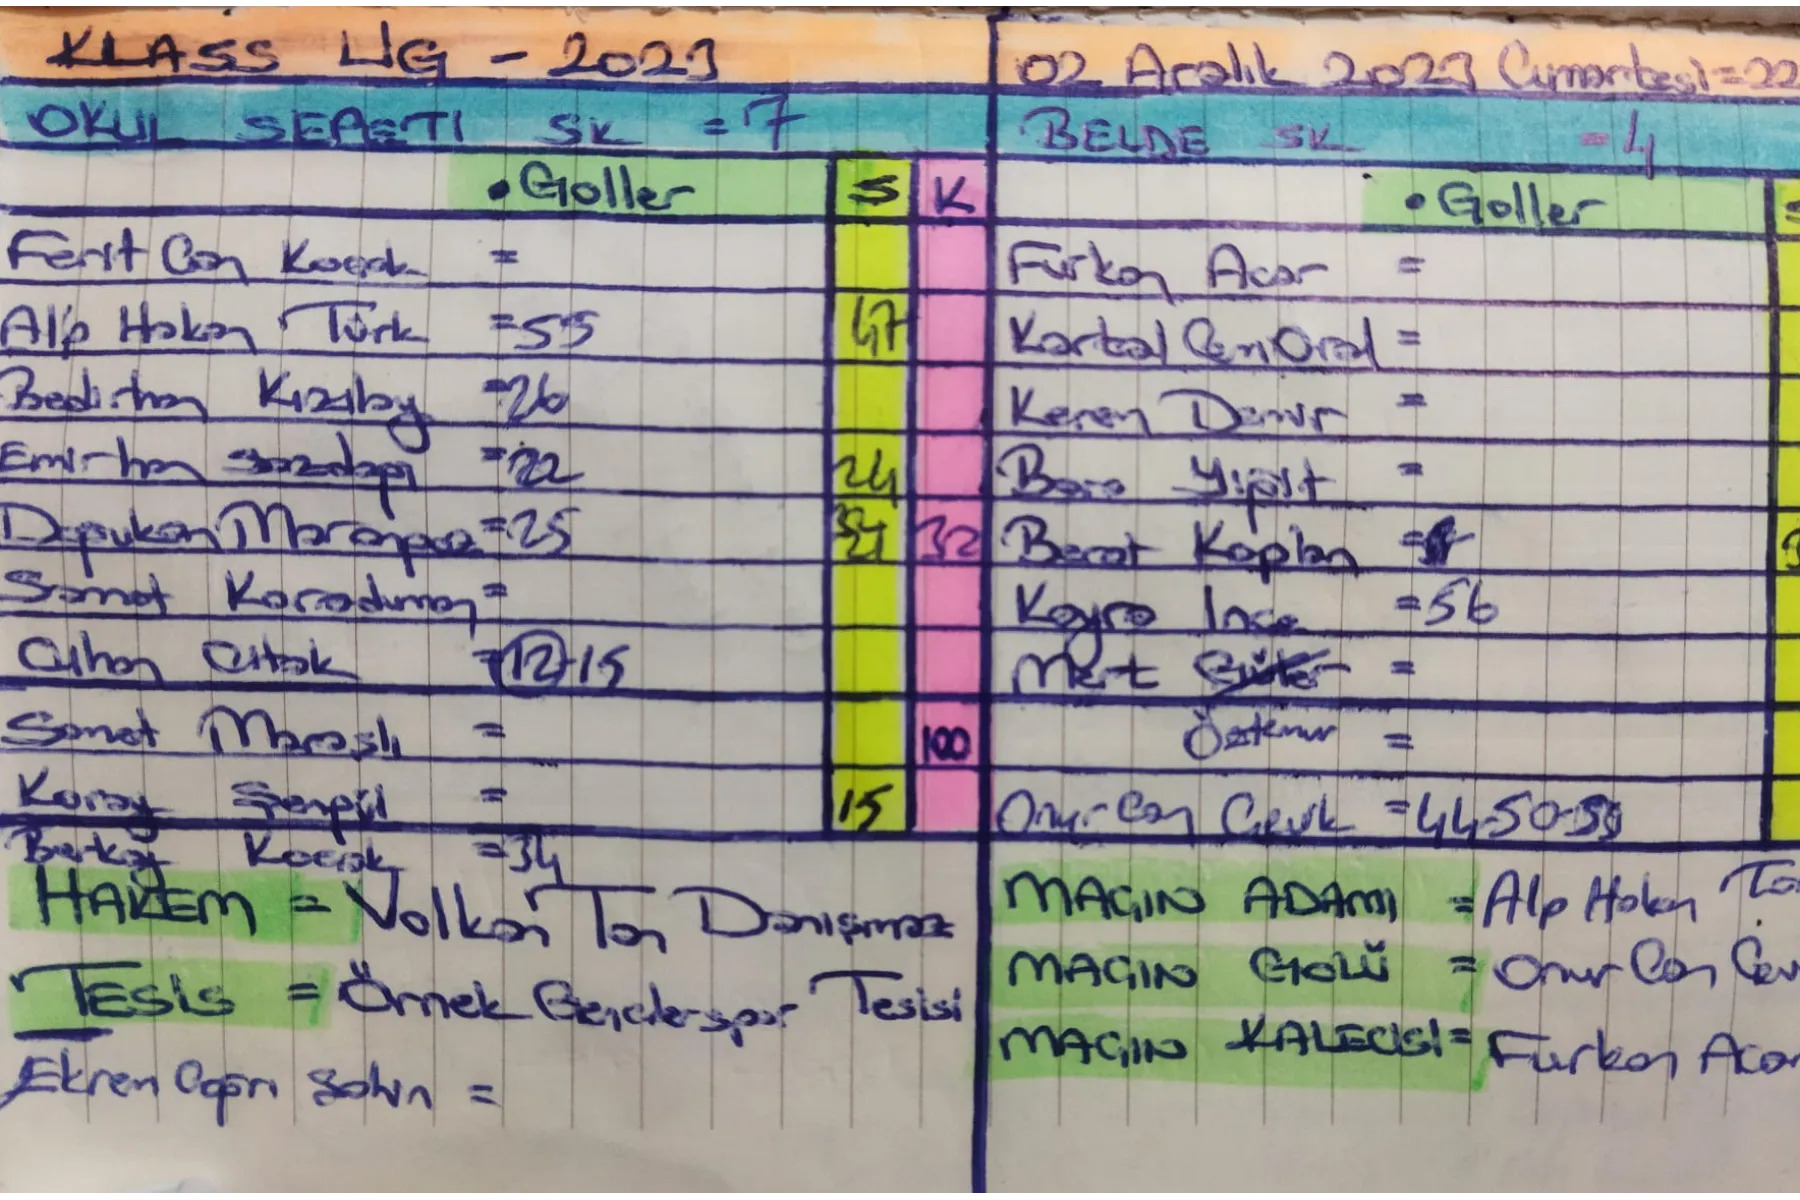 KLASS LİG - 2023
02 Aralık 2023 Cumartesi = 22
OKUL SEPETİ SK = 7
BELDE SK = 4
• Goller S K
• Goller S
Ferit Can Koçak =
Furkan Acar =
Alp Hakan Türk = 55 47
Kartal Cem Oral =
Bedirhan Kızılay = 26
Kerem Demir =
Emirhan = 22 24
Bora Yiğit =
Dopukan = 25 32
Berat Kaplan =
Samet Karaduman =
Kayra İnce = 56
Cihan Çıtak = 12-15
Mert =
Samet Maraşlı = 100
Öztemur =
Koray Şenpil = 15
Onur Can Çevik = 44-50-59
Berkay Koçak = 34
HAKEM = Volkan Tan Danışmaz
MAÇIN ADAMI = Alp Hakan
TESİS = Örnek Gençlerspor Tesisi
MAÇIN GOLÜ = Onur Can Çev
MAÇIN KALECİSİ = Furkan Acar
Ekren Çapri Şahin =